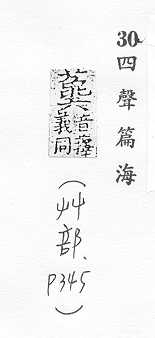 30 四聲篇海
音擇
義同
(艸部、P345)